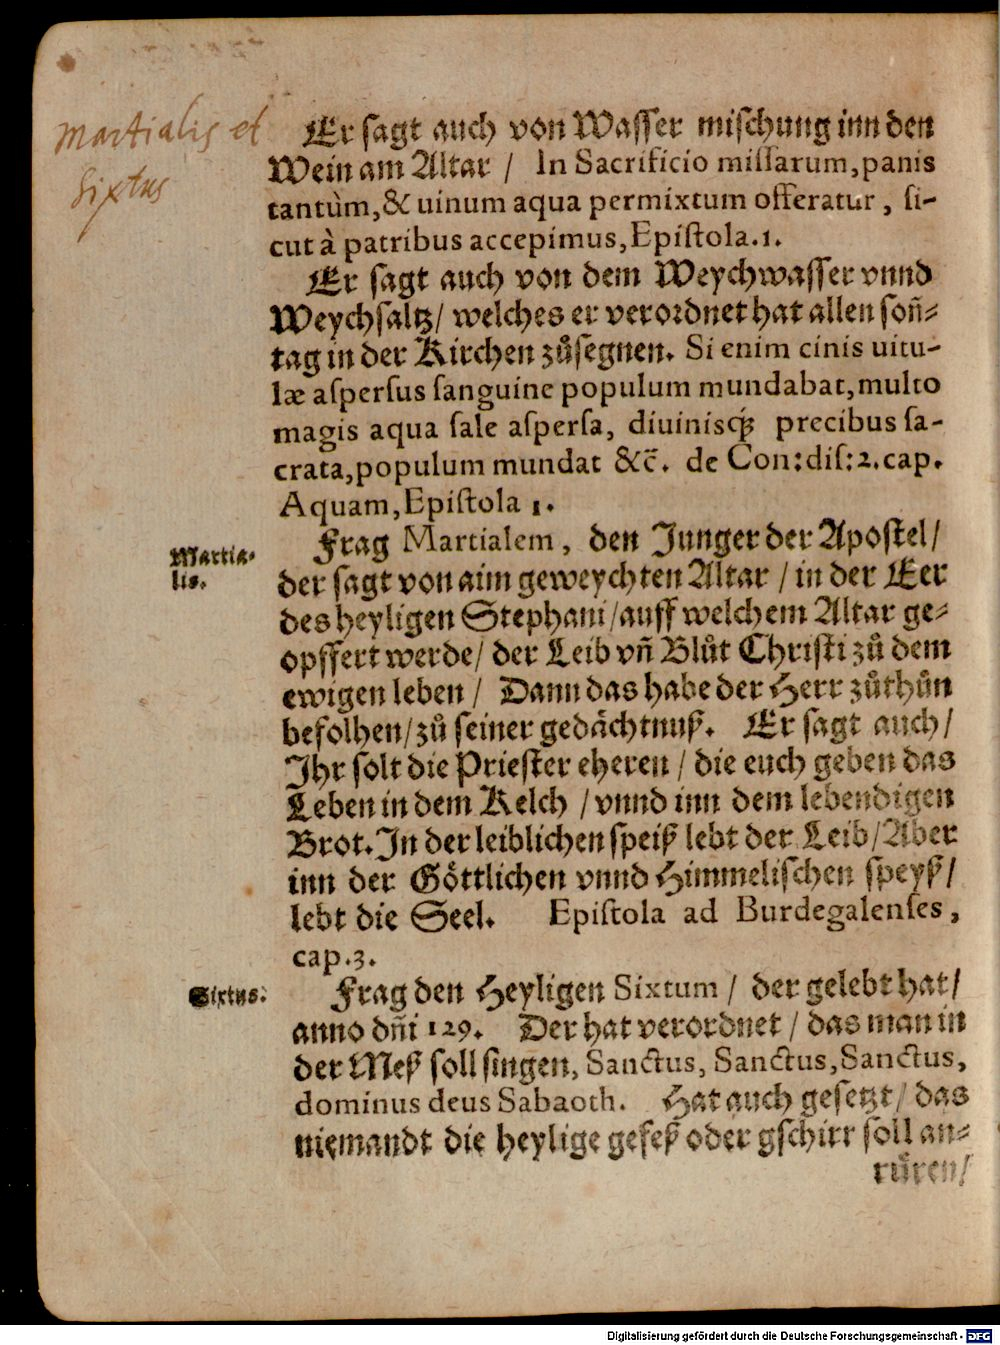 Martialis et
Sixtus
Er sagt auch von Wasser mischung inn den
Wein am Altar / In Sacrificio missarum, panis
tantùm, & uinum aqua permixtum offeratur, si-
cut à patribus accepimus, Epistola. 1.
Er sagt auch von dem Weychwasser vnnd
Weychsaltz / welches er verordnet hat allen son̄-
tag in der Kirchen zůsegnen. Si enim cinis uitu-
læ aspersus sanguine populum mundabat, multo
magis aqua sale aspersa, diuinisq́; precibus sa-
crata, populum mundat &c̄. de Con: dis: 2. cap.
Aquam, Epistola 1.
Martia-
lis.
Frag Martialem, den Junger der Apostel /
der sagt von aim geweychten Altar / in der Eer
des heyligen Stephani / auff welchem Altar ge-
opffert werde / der Leib vn̄ Blůt Christi zů dem
ewigen leben / Dann das habe der Herr zůthůn
befolhen / zů seiner gedächtnuß. Er sagt auch /
Ihr solt die Priester eheren / die euch geben das
Leben in dem Kelch / vnnd inn dem lebendigen
Brot. In der leiblichen speiß lebt der Leib / Aber
inn der Göttlichen vnnd Himmelischen speyß /
lebt die Seel. Epistola ad Burdegalenses,
cap. 3.
Sixtus.
Frag den Heyligen Sixtum / der gelebt hat /
anno dn̄i 129. Der hat verordnet / das man in
der Meß soll singen, Sanctus, Sanctus, Sanctus,
dominus deus Sabaoth. Hat auch gesetzt / das
niemandt die heylige gefeß oder gschirr soll an-
růren /
Digitalisierung gefördert durch die Deutsche Forschungsgemeinschaft - DFG